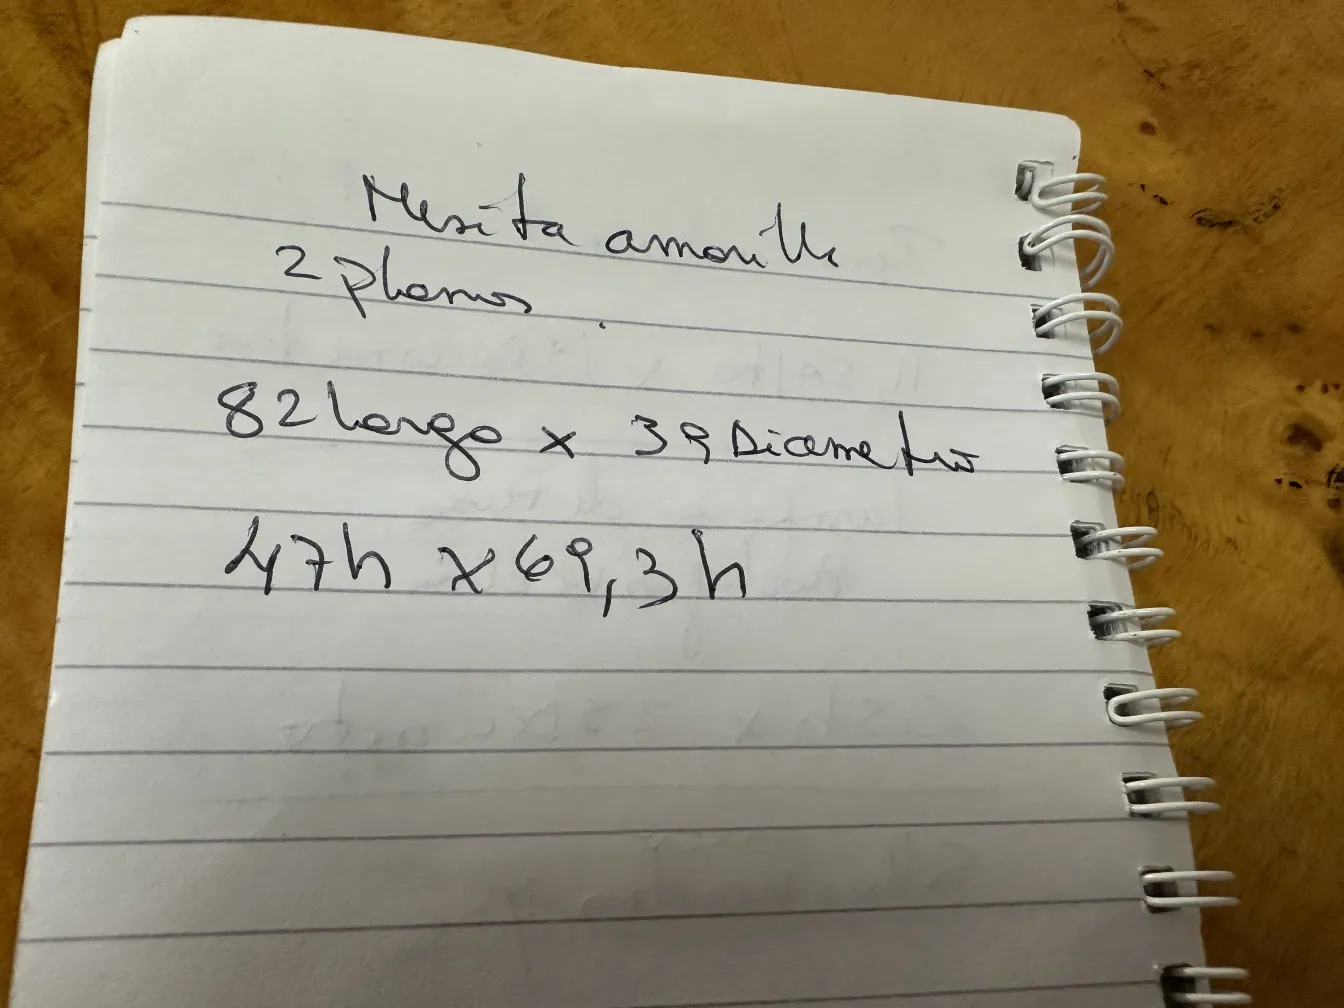 Mesita amarilla
2 planos.
82 largo x 39 Diametro
47h x 69,3h